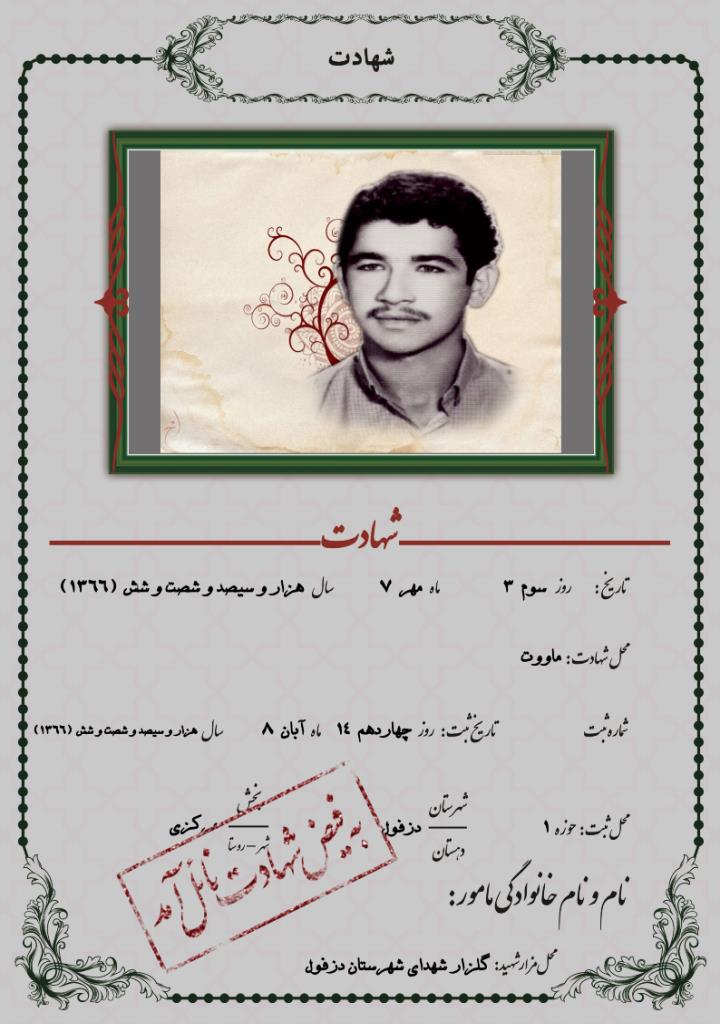 شهادت
شهادت
تاریخ: روز سوم ۳ ماه مهر ۷ سال هزار و سیصد و شصت و شش (۱۳۶۶)
محل شهادت: ماووت
شماره ثبت تاریخ ثبت: روز چهاردهم ۱۴ ماه آبان ۸ سال هزار و سیصد و شصت و شش (۱۳۶۶)
محل ثبت: حوزه ۱ شهرستان دزفول بخش مرکزی
دهستان شهر-روستا
به فیض شهادت نائل آمد
نام و نام خانوادگی مامور:
محل مزار شهید: گلزار شهدای شهرستان دزفول